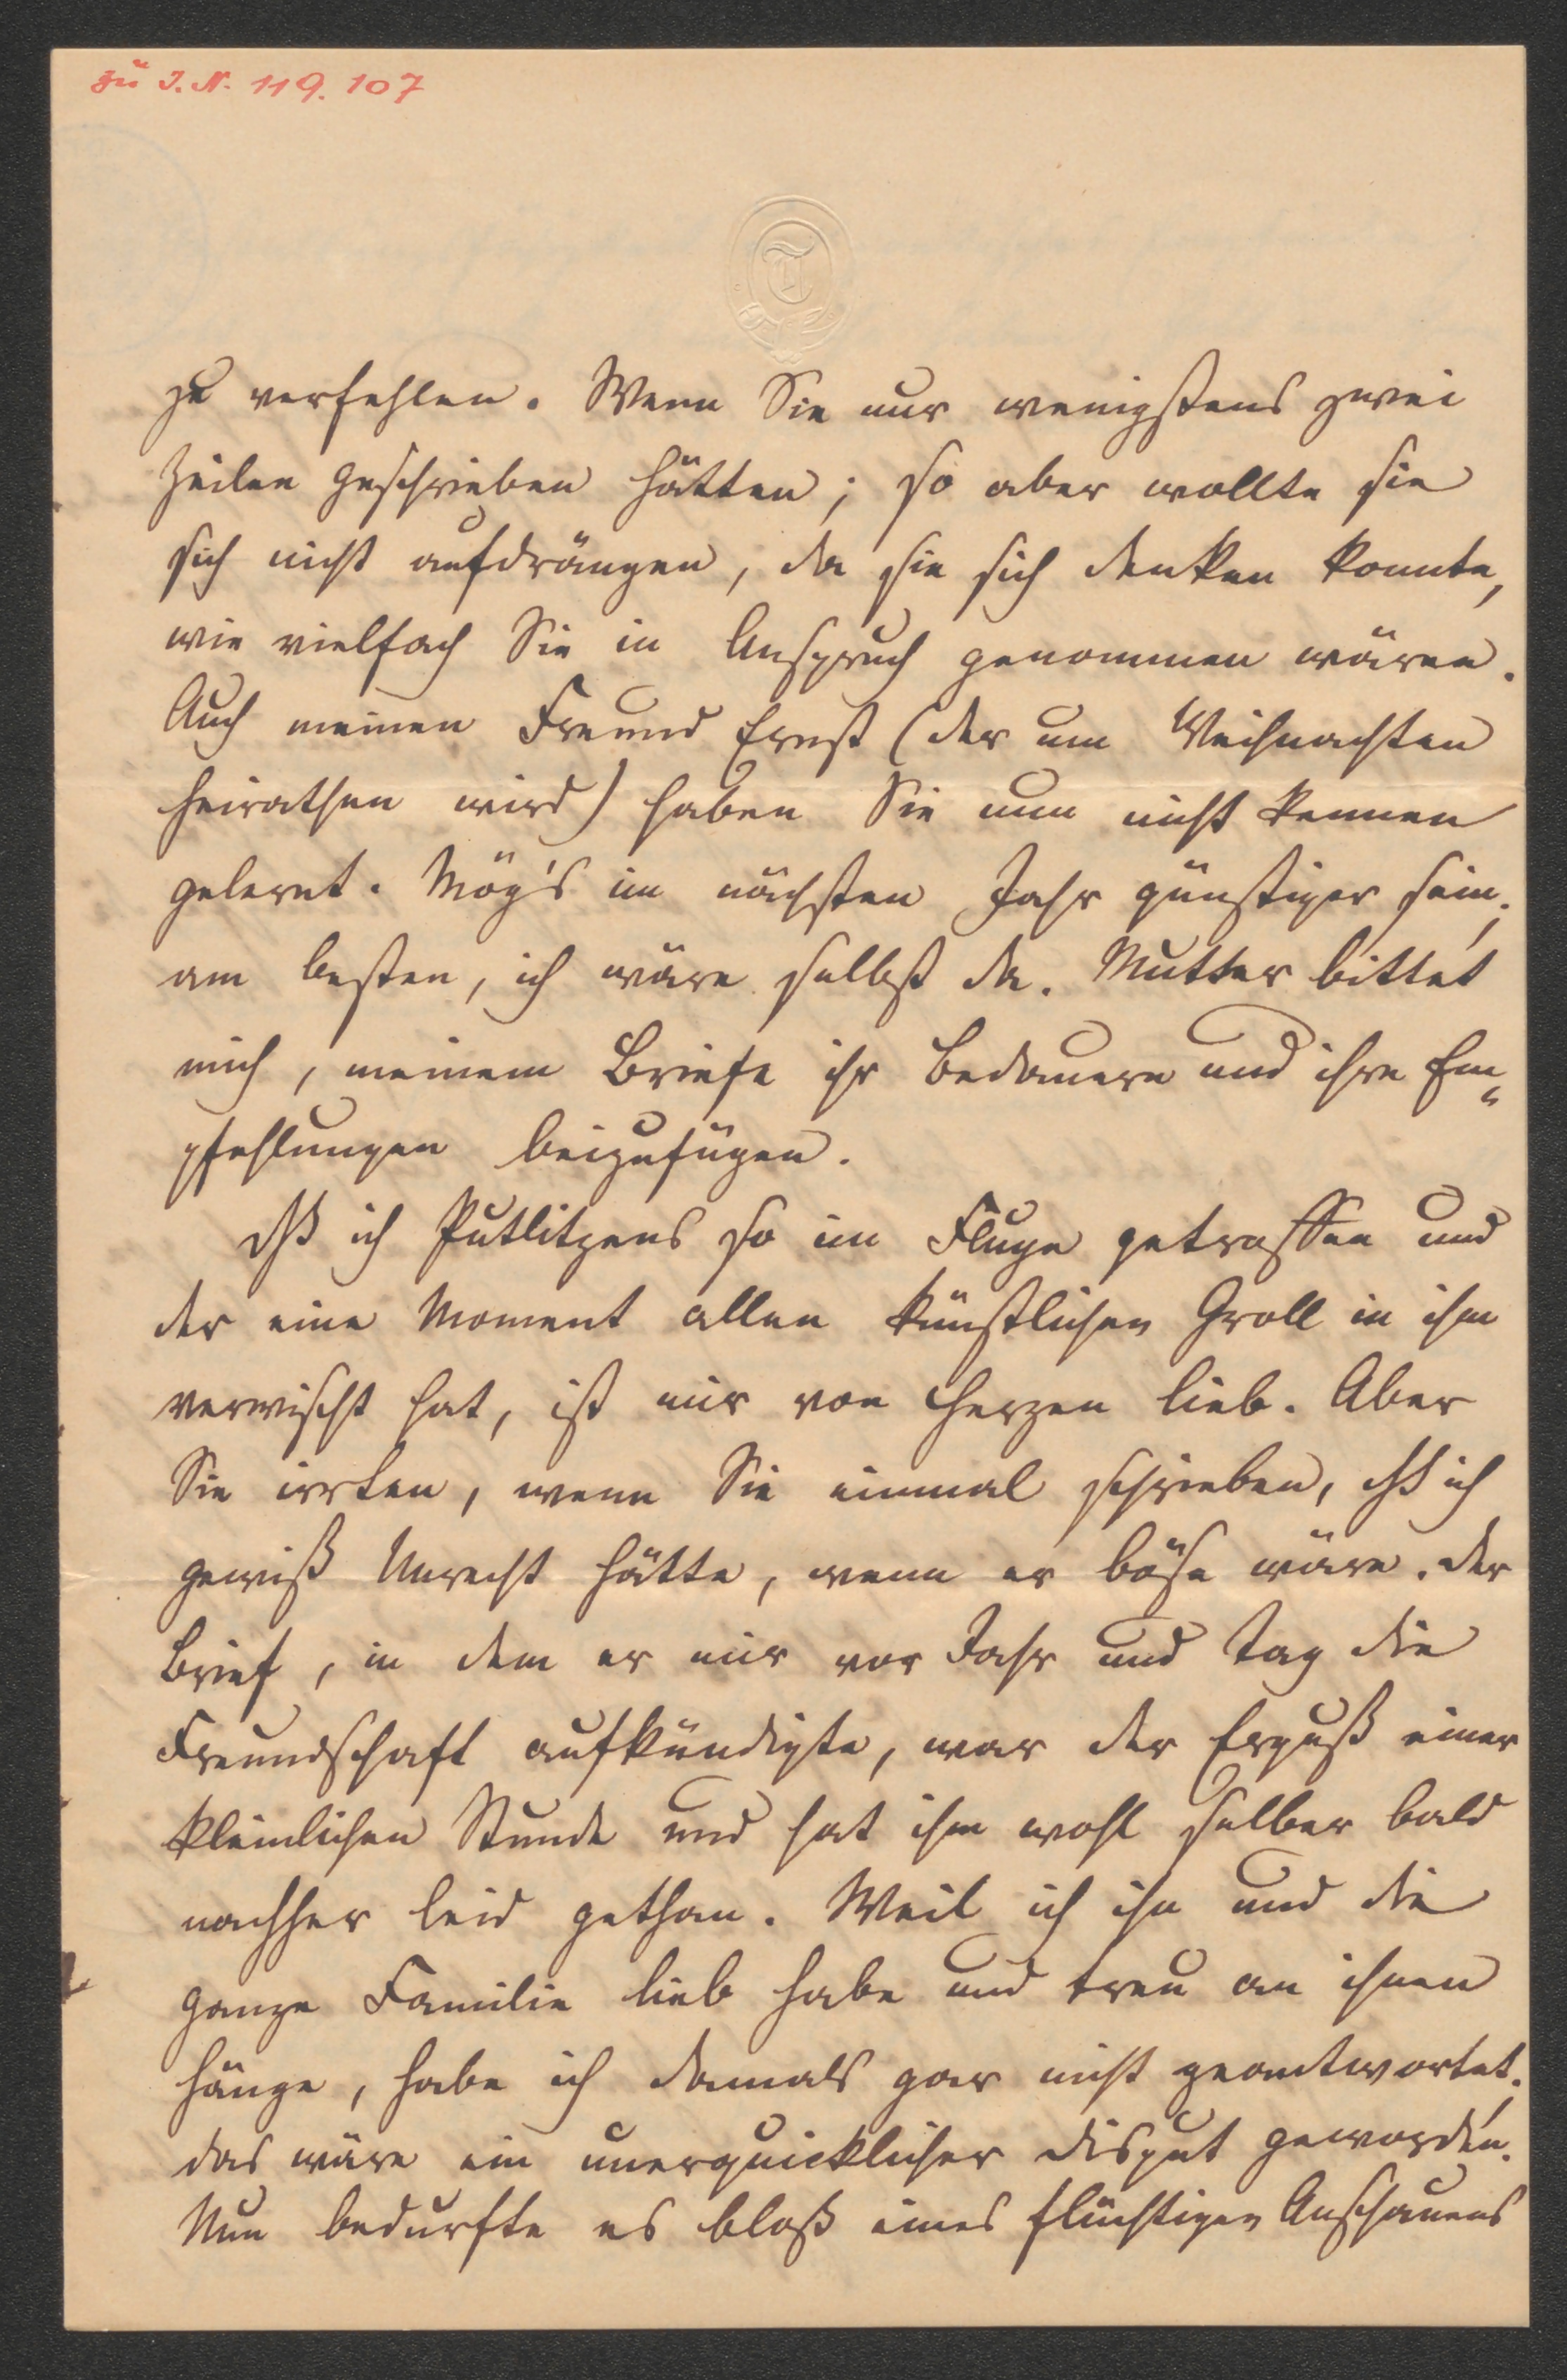 zu I.N. 119.107
T
zu verfehlen. Wenn Sie nur wenigstens zwei
Zeilen geschrieben hätten; so aber wollte sie
sich nicht aufdrängen, da sie sich denken konnte,
wie vielfach Sie in Anspruch genommen wären.
Auch meinen Freund Ernst (der um Weihnachten
heirathen wird) haben Sie nun nicht kennen
gelernt. Mög's im nächsten Jahr günstiger sein;
am besten, ich wäre selbst da. Mutter bittet
mich, meinem Briefe ihr Bedauern und ihre Em-
pfehlungen beizufügen.
Dß ich Putlitzens so im Fluge getroffen und
der eine Moment allen künstlichen Groll in ihm
verwischt hat, ist mir von Herzen lieb. Aber
Sie irrten, wenn Sie einmal schrieben, dß ich
gewiß Unrecht hätte, wenn er böse wäre. Der
Brief, in dem er mir vor Jahr und Tag die
Freundschaft aufkündigte, war der Erguß einer
kleinlichen Stunde und hat ihm wohl selber bald
nachher leid gethan. Weil ich ihn und die
ganze Familie lieb habe und treu an ihnen
hänge, habe ich damals gar nicht geantwortet;
das wäre ein unerquicklicher Disput geworden.
Nun bedurfte es bloß eines flüchtigen Anschauens